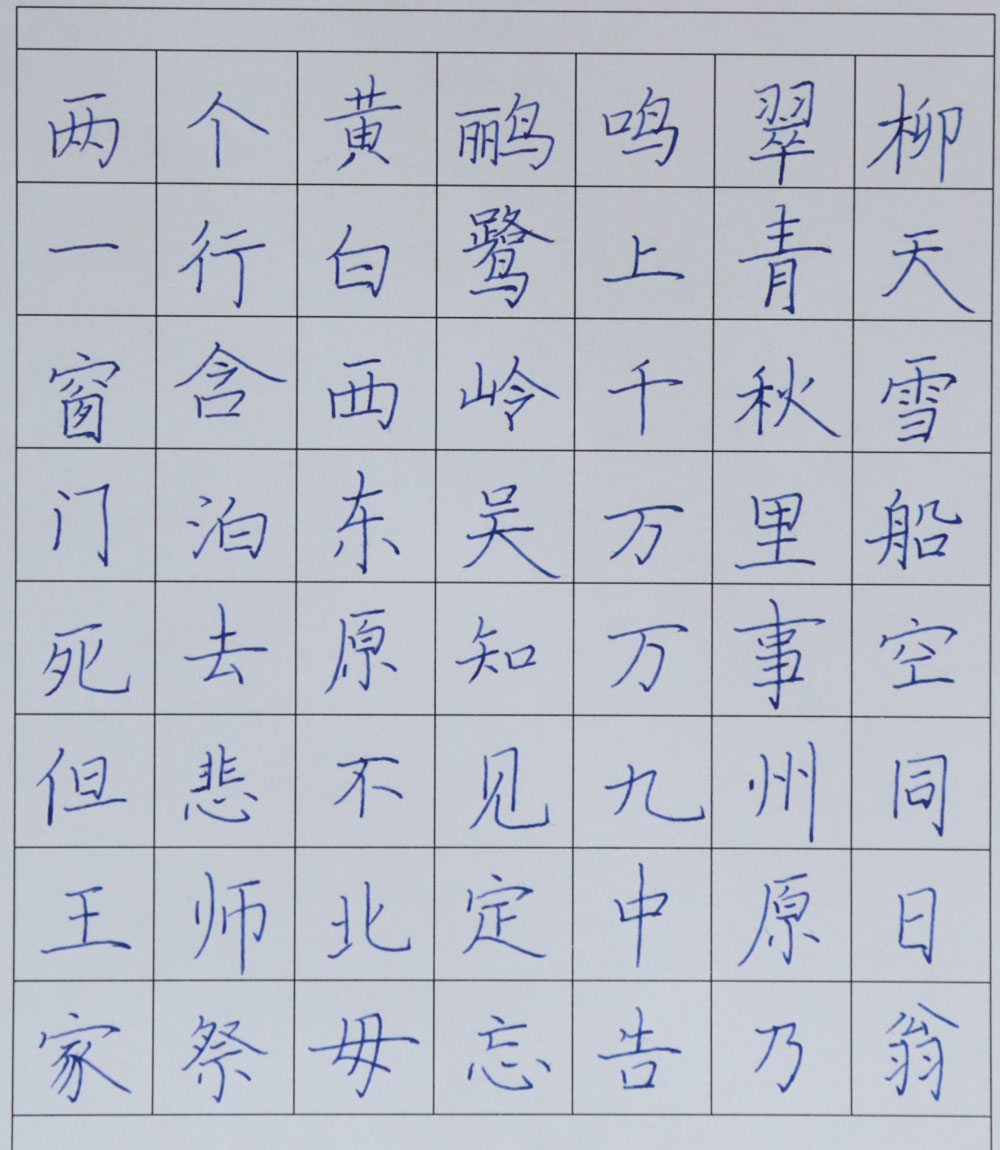 两个黄鹂鸣翠柳
一行白鹭上青天
窗含西岭千秋雪
门泊东吴万里船
死去原知万事空
但悲不见九州同
王师北定中原日
家祭毋忘告乃翁